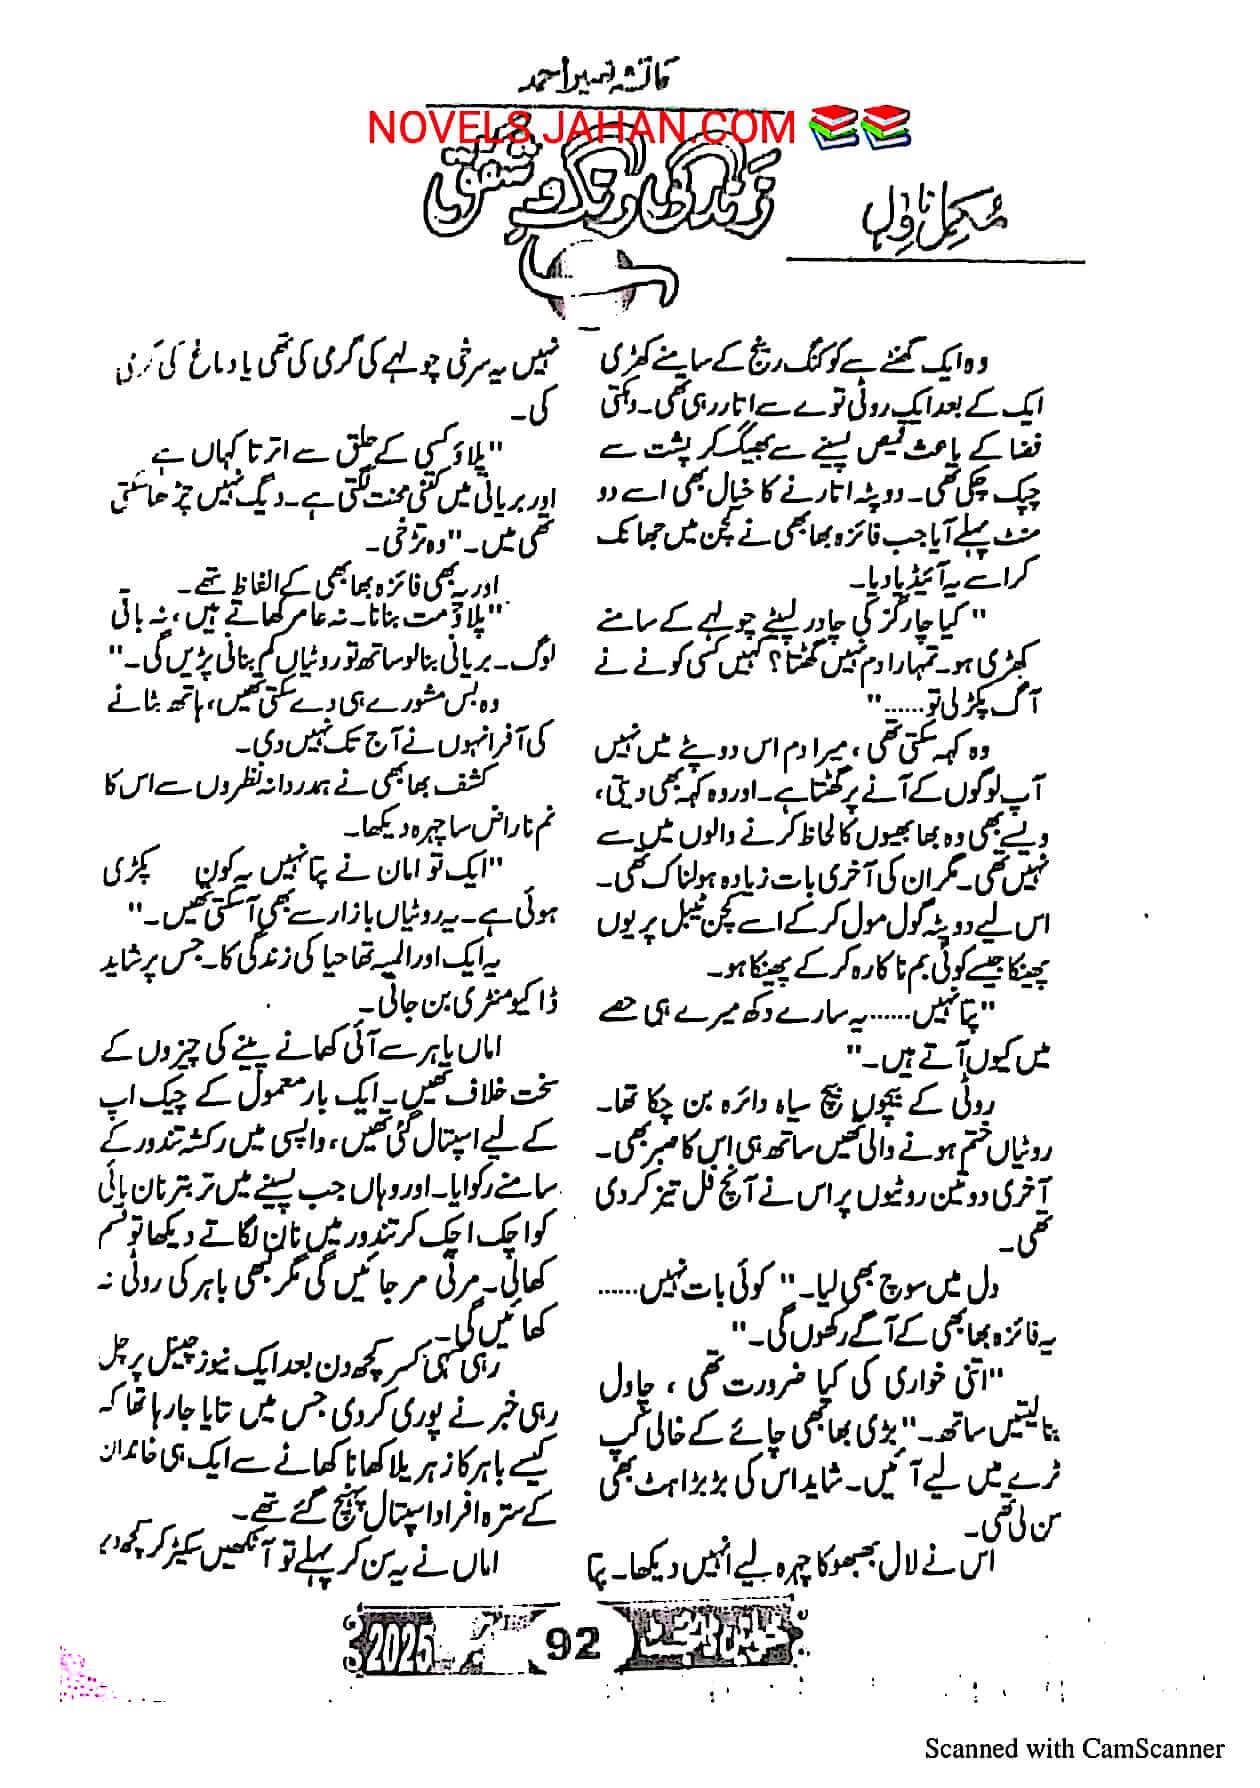 عائشہ نصیر احمد
NOVELS JAHAN.COM
زندگی رنگ و شفق
مکمل ناول
وہ ایک گھنٹے سے کوکنگ رینج کے سامنے کھڑی
ایک کے بعد ایک روٹی توے سے اتار رہی تھی۔ دہکتی
فضا کے باعث قمیص پسینے سے بھیگ کر پشت سے
چپک چکی تھی۔ دوپٹہ اتارنے کا خیال بھی اسے دو
منٹ پہلے آیا جب فائزہ بھابھی نے کچن میں جھانک
کر اسے یہ آئیڈیا دیا۔
"کیا چار گز کی چادر لپیٹے چولہے کے سامنے
کھڑی ہو۔ تمہارا دم نہیں گھٹتا؟ کہیں کسی کونے نے
آگ پکڑ لی تو......"
وہ کہہ سکتی تھی، میرا دم اس دوپٹے میں نہیں
آپ لوگوں کے آنے پر گھٹتا ہے۔ اور وہ کہہ بھی دیتی،
ویسے بھی وہ بھابھیوں کا لحاظ کرنے والوں میں سے
نہیں تھی۔ مگر ان کی آخری بات زیادہ ہولناک تھی۔
اس لیے دوپٹہ گول مول کر کے اسے کچن ٹیبل پر یوں
پھینکا جیسے کوئی بم ناکارہ کر کے پھینکا ہو۔
"پتا نہیں...... یہ سارے دکھ میرے ہی حصے
میں کیوں آتے ہیں۔"
روٹی کے بیچوں بیچ سیاہ دائرہ بن چکا تھا۔
روٹیاں ختم ہونے والی تھیں ساتھ ہی اس کا صبر بھی۔
آخری دو تین روٹیوں پر اس نے آنچ فل تیز کر دی
تھی۔
دل میں سوچ بھی لیا۔ "کوئی بات نہیں......
یہ فائزہ بھابھی کے آگے رکھوں گی۔"
"اتنی خواری کی کیا ضرورت تھی، چاول
بنا لیتیں ساتھ۔" بڑی بھابھی چائے کے خالی کپ
ٹرے میں لیے آئیں۔ شاید اس کی بڑبڑاہٹ بھی
سن لی تھی۔
اس نے لال بھبھوکا چہرہ لیے انہیں دیکھا۔ پتا
نہیں یہ سرخی چولہے کی گرمی کی تھی یا دماغ کی گرمی
کی۔
"پلاؤ کسی کے حلق سے اترتا کہاں ہے
اور بریانی میں کتنی محنت لگتی ہے۔ دیگ نہیں چڑھا سکتی
تھی میں۔" وہ تڑخی۔
اور یہ بھی فائزہ بھابھی کے الفاظ تھے۔
"پلاؤ مت بنانا۔ نہ عامر کھاتے ہیں، نہ باقی
لوگ۔ بریانی بنا لو ساتھ تو روٹیاں کم بنانی پڑیں گی۔"
وہ بس مشورے ہی دے سکتی تھیں، ہاتھ بٹانے
کی آفر انہوں نے آج تک نہیں دی۔
کشف بھابھی نے ہمدردانہ نظروں سے اس کا
نم ناراض سا چہرہ دیکھا۔
"ایک تو اماں نے پتا نہیں یہ کون پکڑی
ہوئی ہے۔ یہ روٹیاں بازار سے بھی آ سکتی تھیں۔"
یہ ایک اور المیہ تھا حیا کی زندگی کا۔ جس پر شاید
ڈاکیومنٹری بن جاتی۔
اماں باہر سے آئی کھانے پینے کی چیزوں کے
سخت خلاف تھیں۔ ایک بار معمول کے چیک اپ
کے لیے اسپتال گئی تھیں، واپسی میں رکشہ تندور کے
سامنے رکوایا۔ اور وہاں جب پسینے میں تربتر نان بائی
کو اچک اچک کر تندور میں نان لگاتے دیکھا تو قسم
کھائی۔ مرتی مر جائیں گی مگر کبھی باہر کی روٹی نہ
کھائیں گی۔
رہی سہی کسر کچھ دن بعد ایک نیوز چینل پر چل
رہی خبر نے پوری کر دی جس میں بتایا جا رہا تھا کہ
کیسے باہر کا زہریلا کھانا کھانے سے ایک ہی خاندان
کے سترہ افراد اسپتال پہنچ گئے تھے۔
اماں نے یہ سن کر پہلے تو آنکھیں سکیڑ کر کچھ دیر
خواتین ڈائجسٹ 92 2025
Scanned with CamScanner